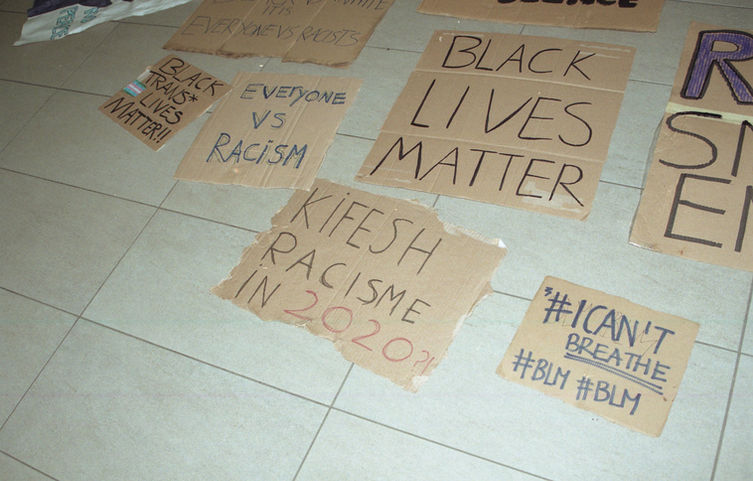 EVERYONE VS RACISTS
BLACK
TRANS*
LIVES
MATTER!!
EVERYONE
VS
RACISM
BLACK
LIVES
MATTER
KIFESH
RACISME
IN 2020?!
#ICAN'T
BREATHE
#BLM #BLM